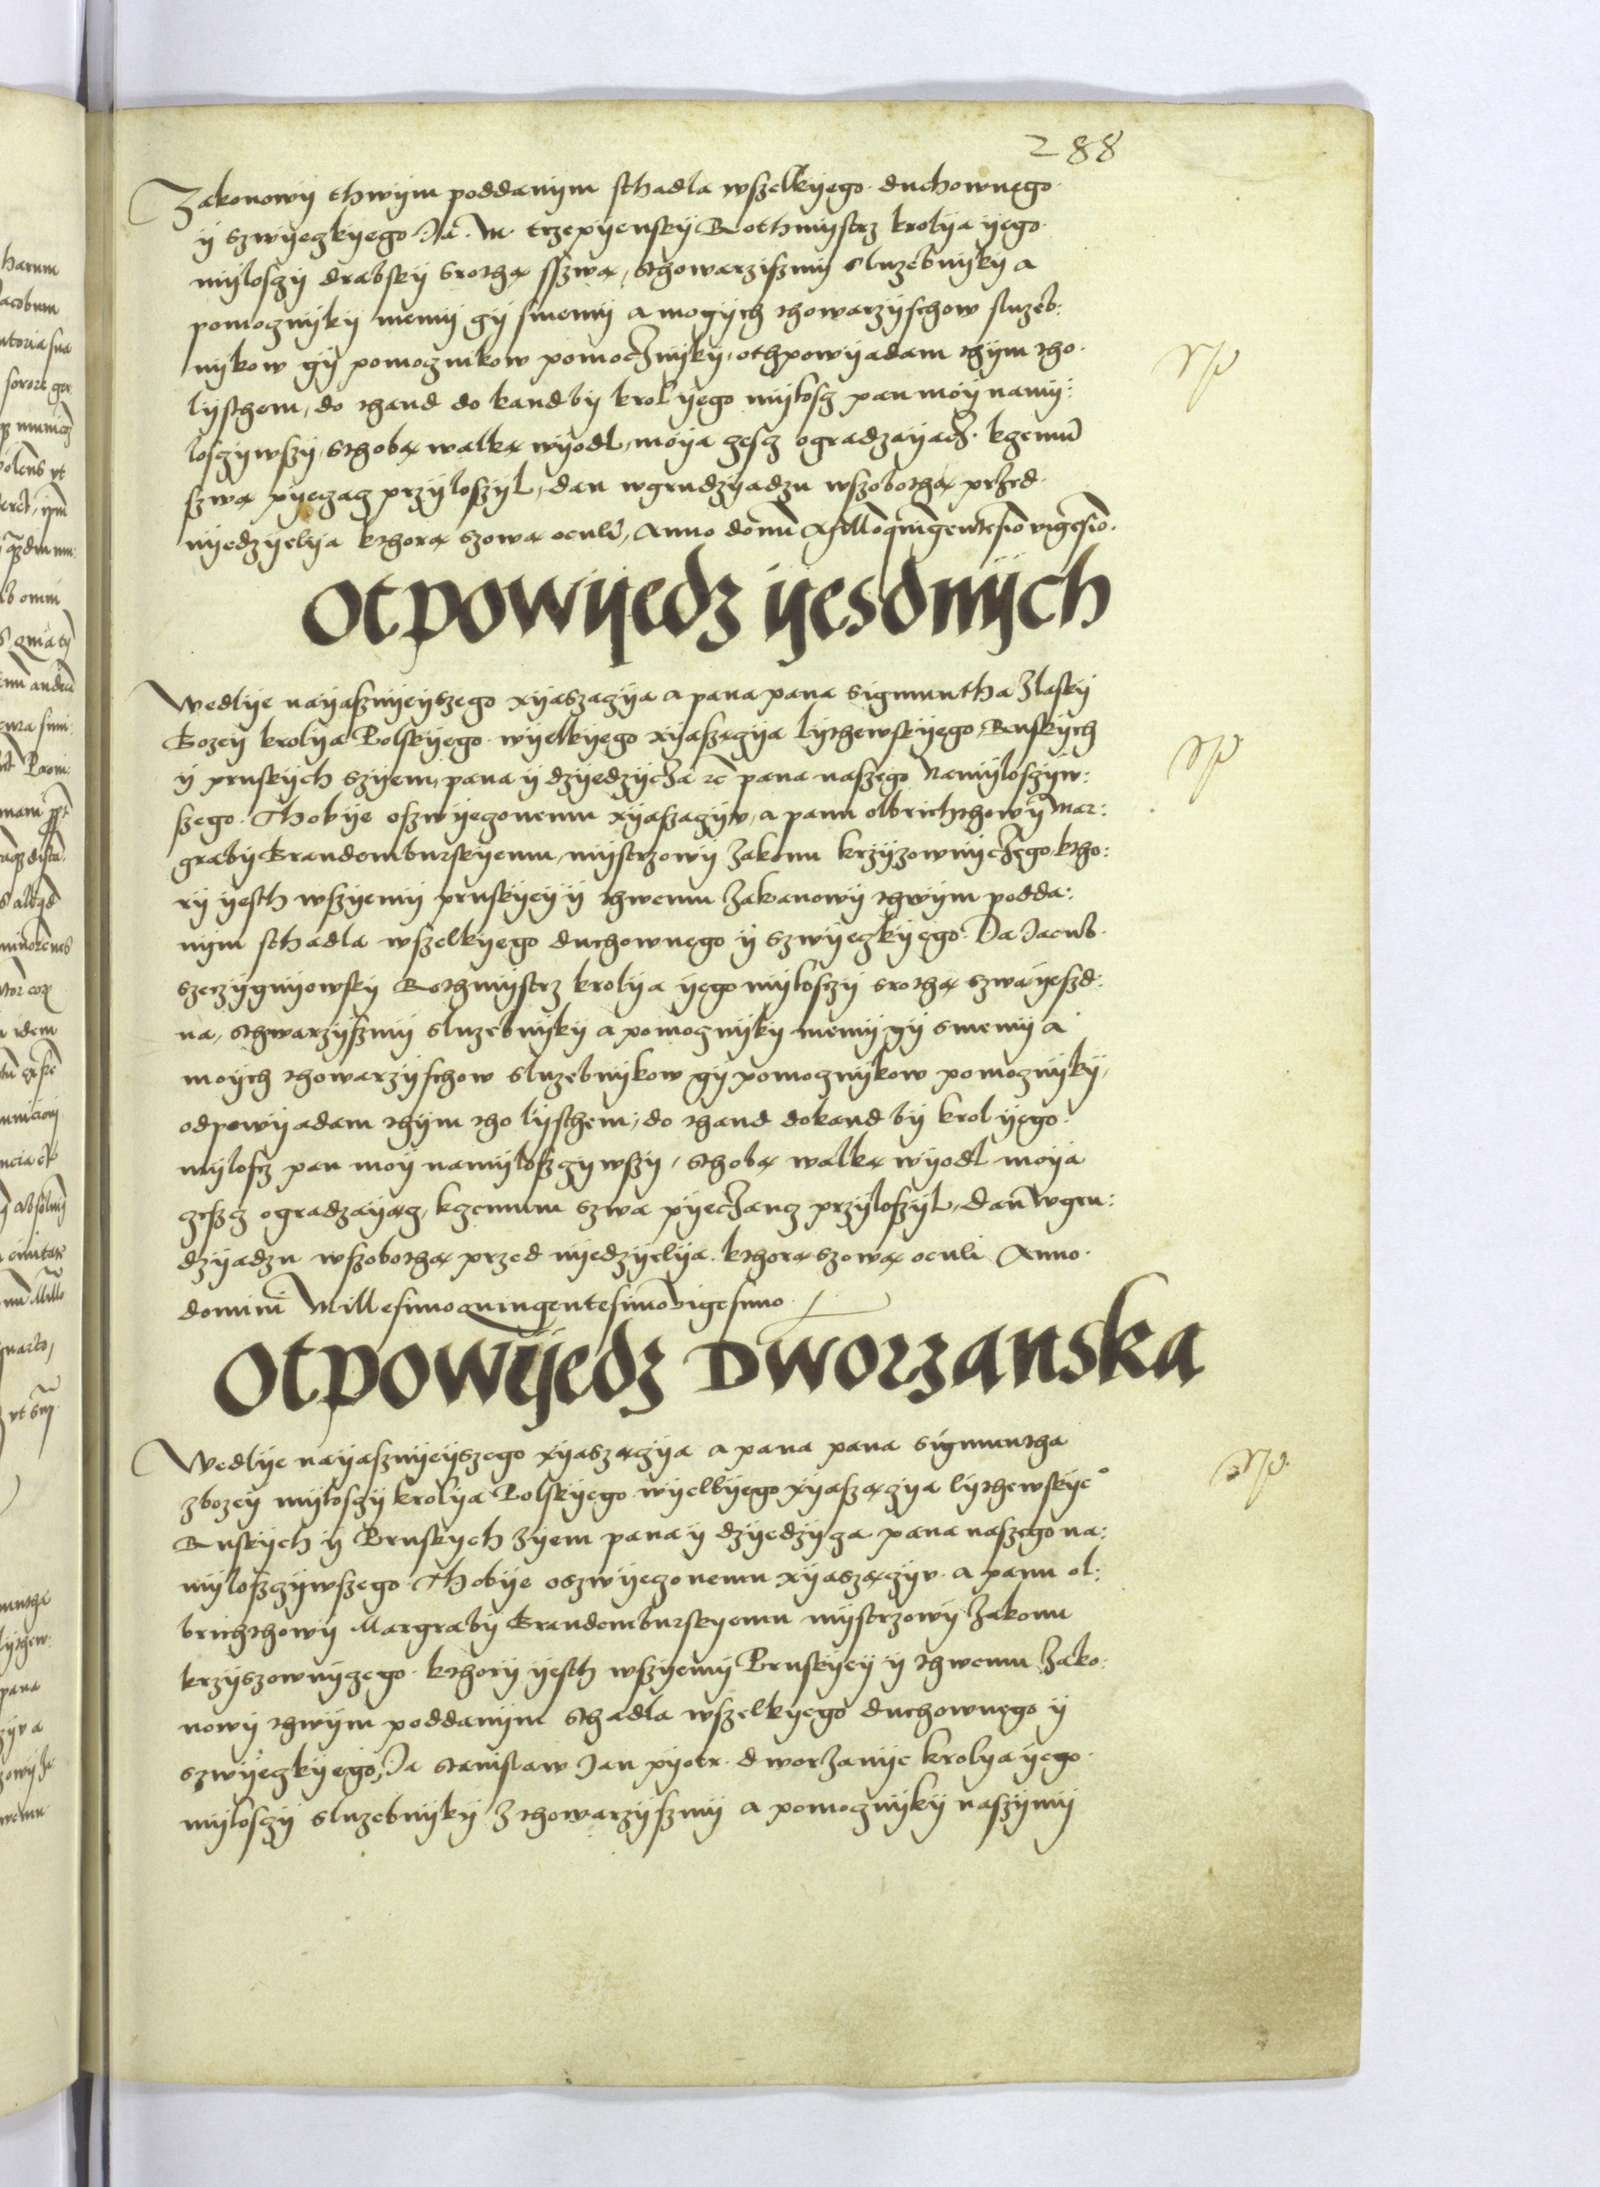 288
Zakonowÿ thwÿm poddanÿm sthadla wszelkÿego duchownego
ÿ szwÿeczkÿego Ja. M. trzepÿenskÿ Rothmÿstrz krolÿa ÿego
mÿlosczÿ drabskÿ srothą sszwą, sthowarziszmÿ sluzebnÿkÿ a
pomocznÿkÿ memÿ gÿ smemÿ a mogÿch thowarzÿschow sluzeb:
nÿkow gÿ pomocznikow pomocznÿkÿ, othpowÿadam thÿm tho
lÿsthem, do thand do kand bÿ krol ÿego mÿlosz pan moÿ namÿ:
losczÿwszÿ, sthobą walką wÿodl, moÿa czesz ogradzaÿacz kzemu
szwą pÿeczacz przÿloszÿl, dan wgrudzÿadzu wszobothą przed
nÿedzÿelÿa kthorą szową oculi, Anno domini Millo quingentesimo vigesimo.
Otpowÿedz ÿesdnÿch
Wedlÿe naÿasznÿeÿszego xÿaszaczÿa a pana pana sigmuntha Zlaskÿ
Bozeÿ krolÿa Polskÿego wÿelkÿego xÿaszączÿa lÿthewskÿego, Ruskÿch
ÿ pruskÿch szÿem, pana ÿ dzÿedzÿcza etc pana naszego Namÿlosczÿw:
szego. Thobÿe oszwÿeczonemu xÿaszaczÿv, a panu olbrichthowÿ Mar:
grabÿ Brandemburskÿemu, mÿstrzowÿ Zakonu krzÿzownÿczego, ktho:
rÿ ÿesth wszÿemÿ pruskÿeÿ ÿ thwemu Zakanowÿ thwÿm podda:
nÿm sthadla wszelkÿego duchownego ÿ szwÿeczkÿego. Ja Jacub
szeczÿgnÿowskÿ Rothmÿstrz krolÿa ÿego mÿlosczÿ srothą szwa ÿeszd:
na, sthwarzÿszmÿ sluzebnÿkÿ a pomocznÿkÿ memÿ gÿ smemÿ a
moÿch thowarzÿschow sluzebnÿkow gÿ pomocznÿkow pomocznÿkÿ,
odpowÿadam thÿm tho lÿsthem, do thand dokand bÿ krol ÿego
mÿlosz pan moÿ namÿloszczÿwszÿ, sthobą walką wÿodl moÿa
czeszcz ogradzaÿącz, kzemum szwa pÿeczancz przÿloszÿl, dan wgru:
dzÿadzu wszobothą przed nÿedzÿelÿa kthorą szową oculi Anno
domini Millesimo quingentesimo vigesimo
Otpowÿedz Dworzanska
Wedlÿe naÿasznÿeÿszego xÿaszączÿa a pana pana sigmuntha
zbozeÿ mÿlosczÿ krolÿa Polskÿego wÿelkÿego xÿaszączÿa lÿthewskÿe°
Ruskÿch ÿ Pruskÿch Zÿem pana ÿ dzÿedzÿcza pana naszego na:
mÿloszczÿwszego. Thobÿe oszwÿeczonemu xÿaszączÿv a panu ol:
brichthowÿ Margrabÿ Brandemburskÿemu mÿstrzowÿ Zakonu
krzÿszownÿczego kthorÿ ÿesth wszÿemÿ Pruskÿeÿ ÿ thwemu Zako:
nowÿ thwÿm poddanÿm sthadla wszelkÿego duchownego ÿ
szwÿeczkÿego, Ja stanislaw Jan pÿotr dworzanÿe krolÿa ÿego
mÿlosczÿ sluzebnÿkÿ Zthowarzÿszmÿ a pomocznÿkÿ naszÿmÿ